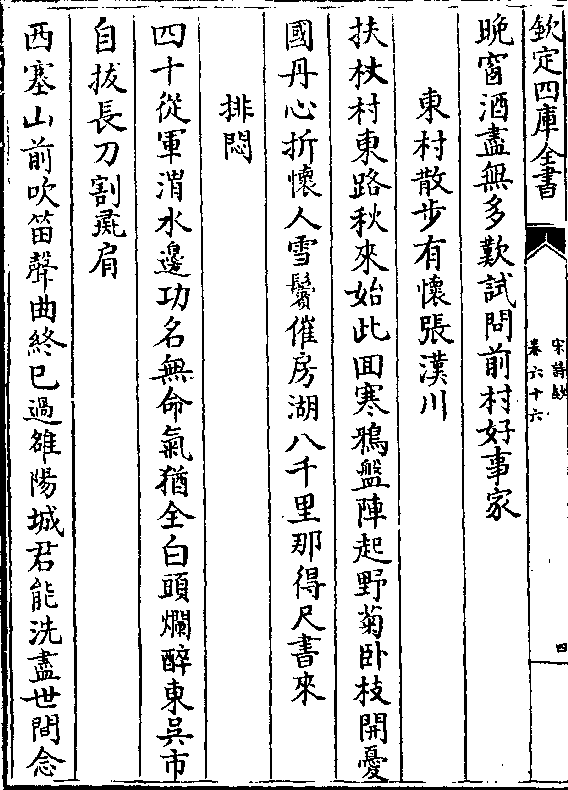 欽定四庫全書
宋詩鈔
卷六十六
四
晚窗酒盡無多歎試問前村好事家
東村散步有懷張漢川
扶杖村東路秋來始此回寒鴉盤陣起野菊卧枝開憂
國丹心折懷人雪鬢催房湖八千里那得尺書來
排悶
四十從軍渭水邊功名無命氣猶全白頭爛醉東吳市
自拔長刀割彘肩
西塞山前吹笛聲曲終已過雒陽城君能洗盡世間念